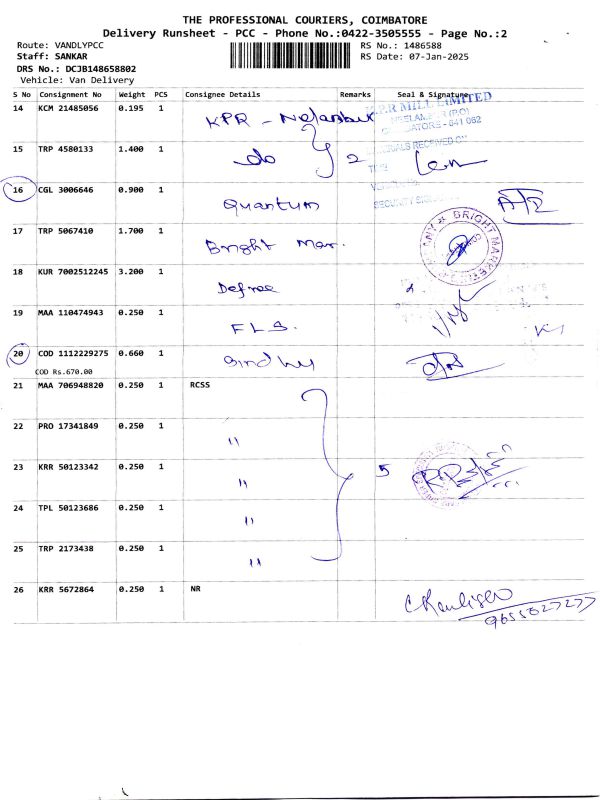 THE PROFESSIONAL COURIERS, COIMBATORE
Delivery Runsheet - PCC - Phone No.:0422-3505555 - Page No.:2
Route: VANDLYPCC RS No.: 1486588
Staff: SANKAR RS Date: 07-Jan-2025
DRS No.: DCJB148658802
Vehicle: Van Delivery
S No Consignment No Weight PCS Consignee Details Remarks Seal & Signature
14 KCM 21485056 0.195 1 KPR - Neelambur K.P.R MILL LIMITED
15 TRP 4580133 1.400 1 do 2
16 CGL 3006646 0.900 1 Quantum
17 TRP 5067410 1.700 1 Bright Mar. BRIGHT
18 KUR 7002512245 3.200 1 Defree
19 MAA 110474943 0.250 1 FLS.
20 COD 1112229275 0.660 1 Sindhu
COD Rs.670.00
21 MAA 706948820 0.250 1 RCSS
22 PRO 17341849 0.250 1 "
23 KRR 50123342 0.250 1 " 5
24 TPL 50123686 0.250 1 "
25 TRP 2173438 0.250 1 "
26 KRR 5672864 0.250 1 NR
9655027277